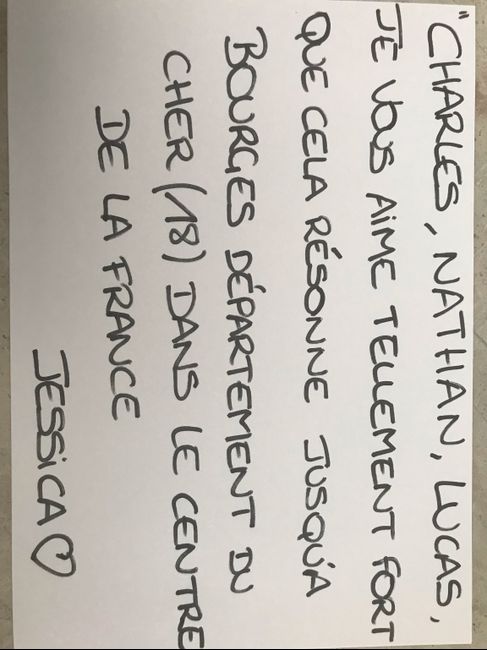 "CHARLES, NATHAN, LUCAS,
JE VOUS AIME TELLEMENT FORT
QUE CELA RÉSONNE JUSQU'A
BOURGES DÉPARTEMENT DU
CHER (18) DANS LE CENTRE
DE LA FRANCE
JESSICA♡